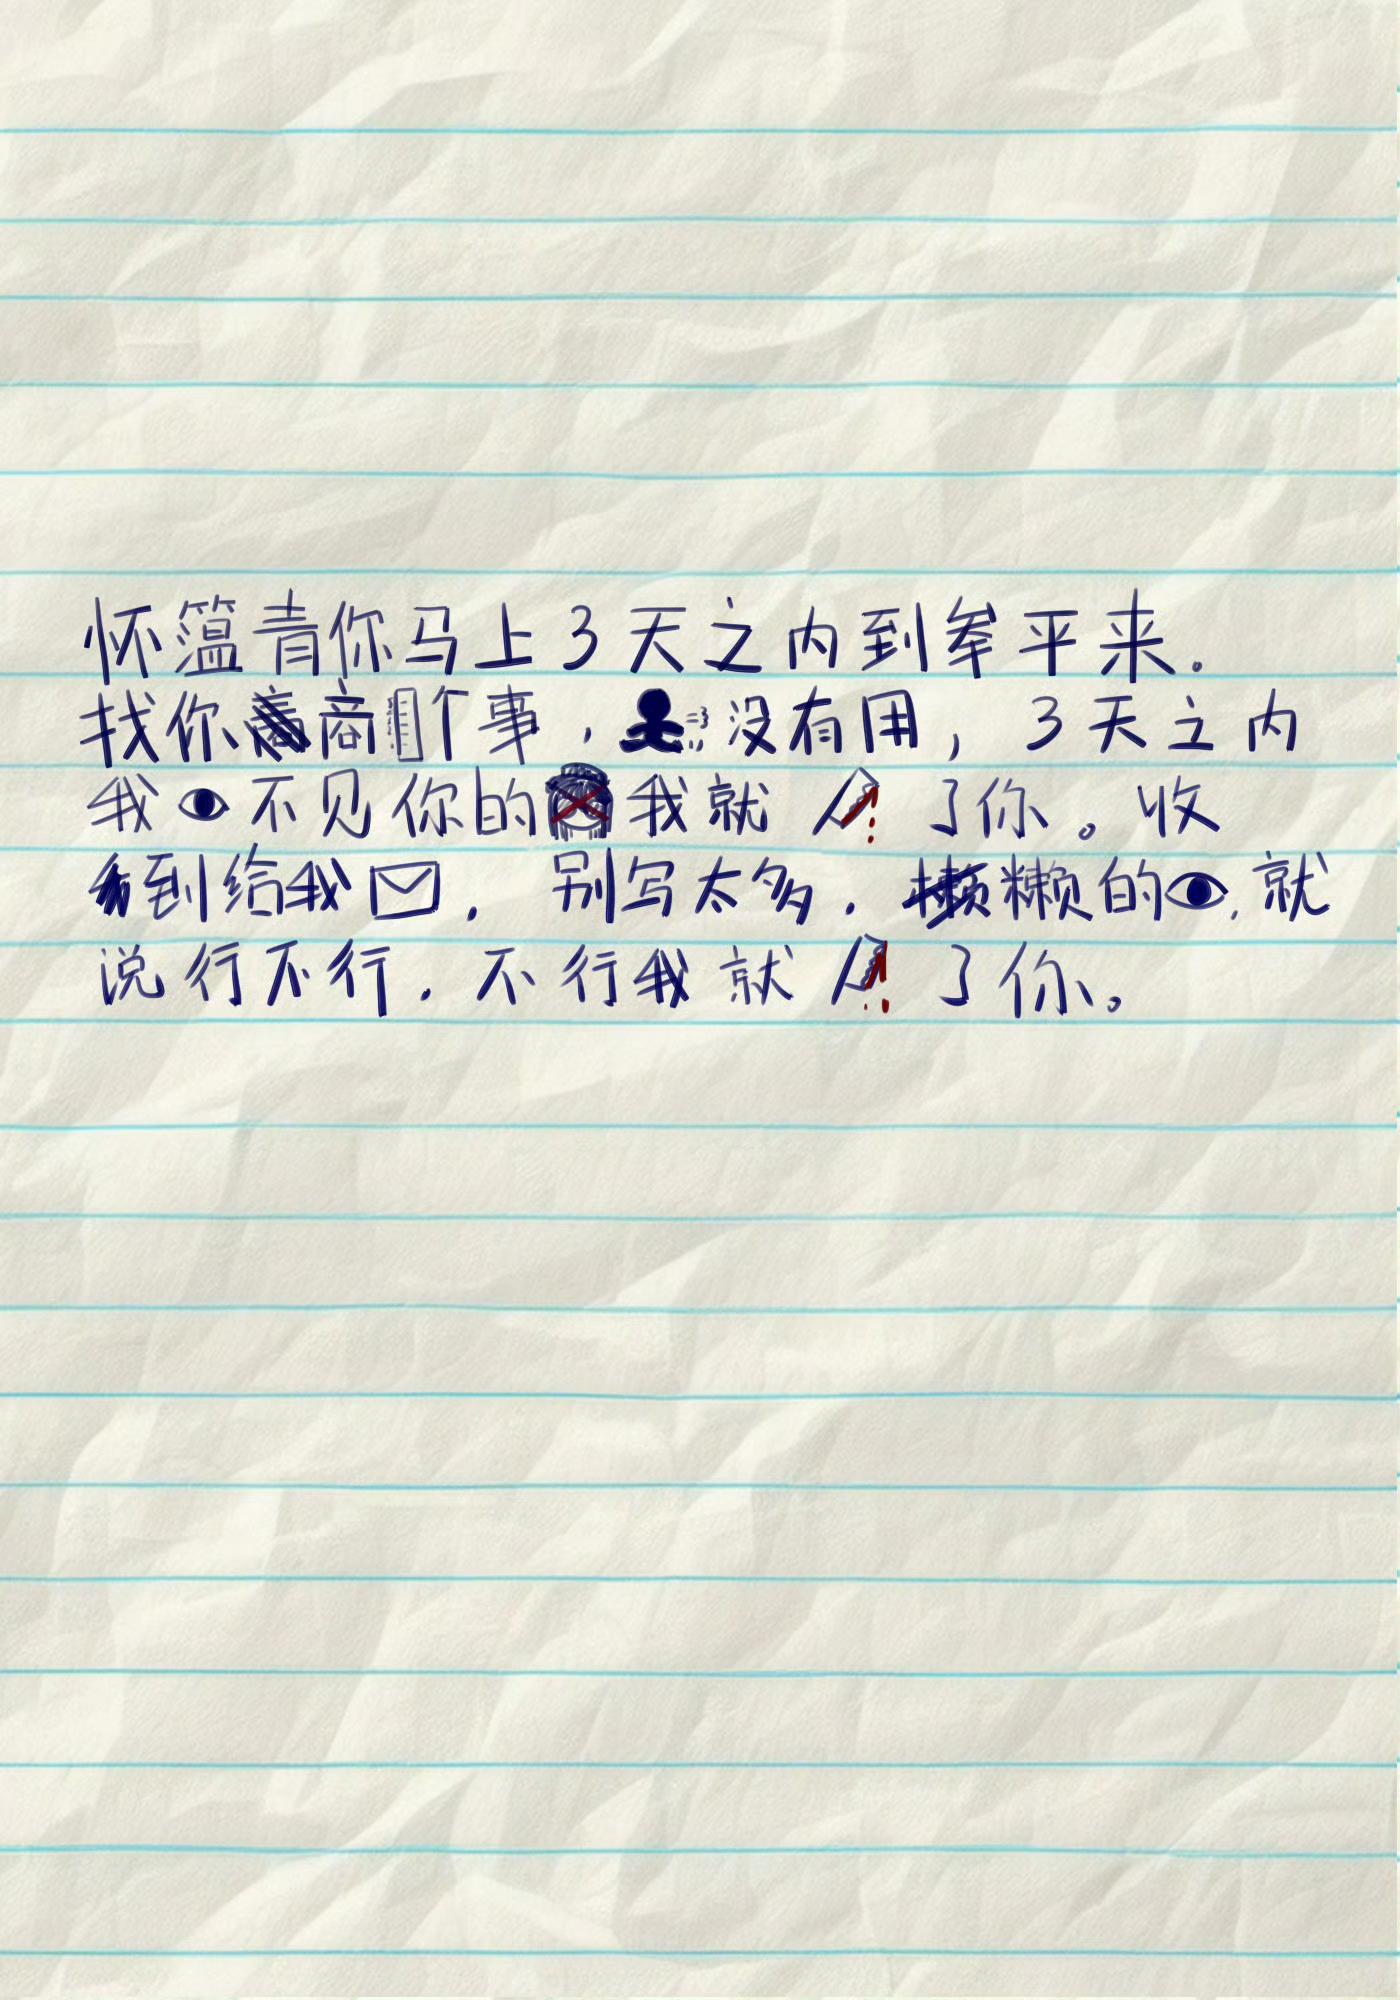 怀蕰青你马上3天之内到峯平来。
找你商个事，没有用，3天之内
我不见你的我就了你。收
到给我，别写太多．懒的，就
说行不行．不行我就了你。